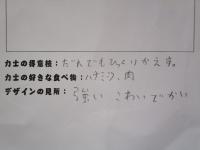 力士の得意技：だれでもひっくりかえす。
力士の好きな食べ物：ハチミツ、肉
デザインの見所：強い こわいでかい